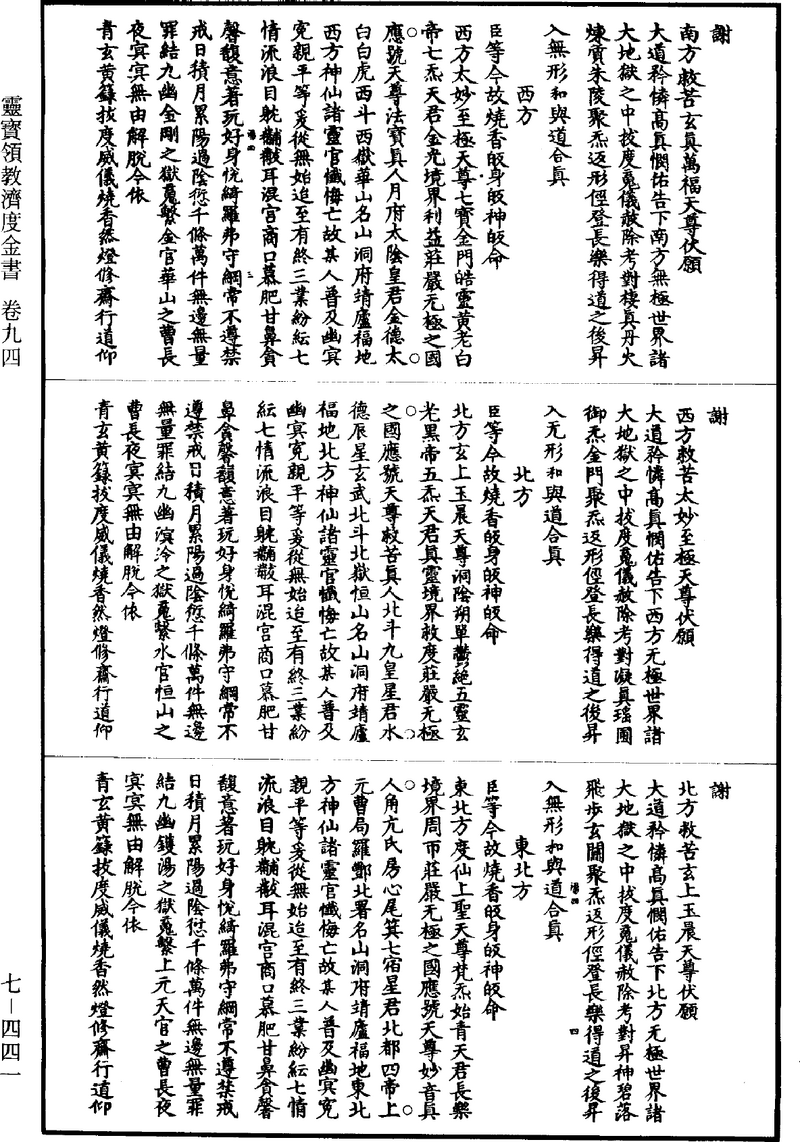 靈寶領教濟度金書 卷九四
七－四四一
謝
南方救苦玄真萬福天尊伏願
大道矜憐高真憫佑告下南方無極世界諸
大地獄之中拔度魂儀赦除考對棲真丹火
煉質朱陵聚炁返形徑登長樂得道之後昇
入無形和與道合真
西方
臣等今故燒香皈身皈神皈命
西方太妙至極天尊七寶金門皓靈黃老白
帝七炁天君金光境界利益莊嚴无極之國
應號天尊法寶真人月府太陰皇君金德太
白白虎西斗西嶽華山名山洞府靖廬福地
西方神仙諸靈官懺悔亡故某人普及幽冥
冤親平等爰從無始迨至有終三業紛紜七
情流浪目眈黼黻耳混宮商口慕肥甘鼻貪
馨馥意著玩好身悅綺羅弗守綱常不遵禁
戒日積月累陽過陰愆千條萬件無邊無量
罪結九幽金剛之獄魂繫金官華山之曹長
夜冥冥無由解脫今依
青玄黃籙拔度威儀燒香然燈修齋行道仰
謝
西方救苦太妙至極天尊伏願
大道矜憐高真憫佑告下西方无極世界諸
大地獄之中拔度魂儀赦除考對凝真瑤圃
御炁金門聚炁返形徑登長樂得道之後昇
入无形和與道合真
北方
臣等今故燒香皈身皈神皈命
北方玄上玉晨天尊洞陰朔單鬱絕五靈玄
老黑帝五炁天君真靈境界救度莊嚴无極
之國應號天尊救苦真人北斗九皇星君水
德辰星玄武北斗北嶽恒山名山洞府靖廬
福地北方神仙諸靈官懺悔亡故某人普及
幽冥冤親平等爰從無始迨至有終三業紛
紜七情流浪目眈黼黻耳混宮商口慕肥甘
鼻貪馨馥意著玩好身悅綺羅弗守綱常不
遵禁戒日積月累陽過陰愆千條萬件無邊
無量罪結九幽溟泠之獄魂繫水官恒山之
曹長夜冥冥無由解脫今依
青玄黃籙拔度威儀燒香然燈修齋行道仰
謝
北方救苦玄上玉晨天尊伏願
大道矜憐高真憫佑告下北方无極世界諸
大地獄之中拔度魂儀赦除考對昇神碧落
飛步玄關聚炁返形徑登長樂得道之後昇
入無形和與道合真
東北方
臣等今故燒香皈身皈神皈命
東北方度仙上聖天尊梵炁始青天君長樂
境界周帀莊嚴无極之國應號天尊妙音真
人角亢氐房心尾箕七宿星君北都四帝上
元曹局羅酆北署名山洞府靖廬福地東北
方神仙諸靈官懺悔亡故某人普及幽冥冤
親平等爰從無始迨至有終三業紛紜七情
流浪目眈黼黻耳混宮商口慕肥甘鼻貪馨
馥意著玩好身悅綺羅弗守綱常不遵禁戒
日積月累陽過陰愆千條萬件無邊無量罪
結九幽鑊湯之獄魂繫上元天官之曹長夜
冥冥無由解脫今依
青玄黃籙拔度威儀燒香然燈修齋行道仰